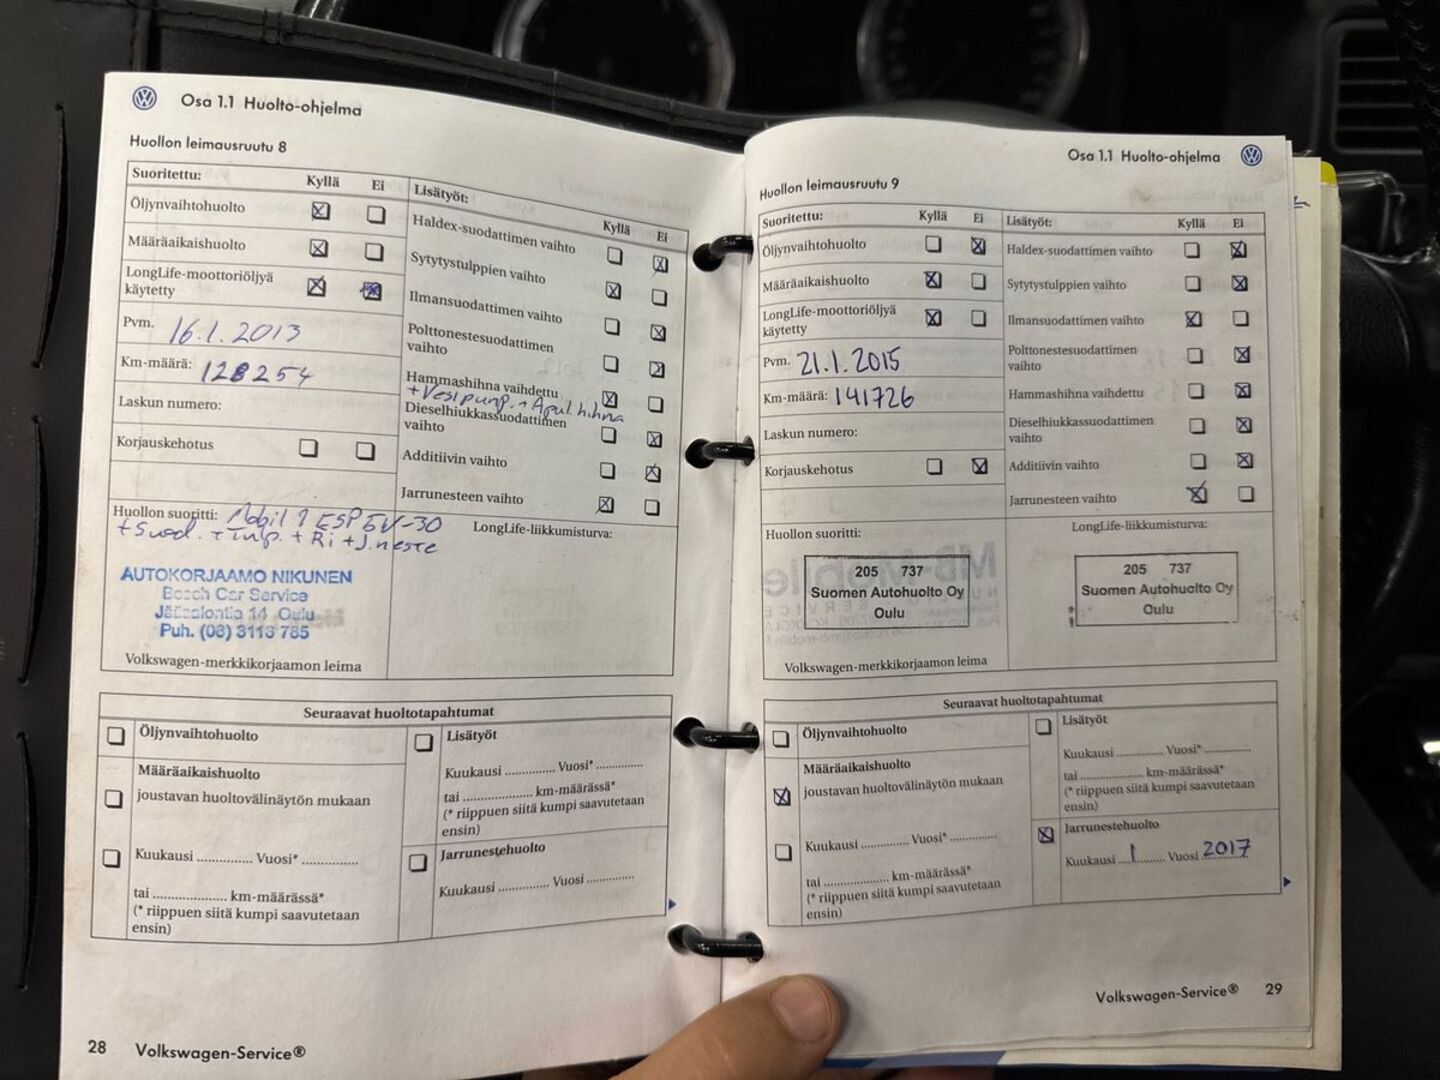 Osa 1.1 Huolto-ohjelma
Huollon leimausruutu 8
Suoritettu: Kyllä Ei
Öljynvaihtohuolto
Määräaikaishuolto
LongLife-moottoriöljyä
käytetty
Pvm. 16.1.2013
Km-määrä: 128254
Laskun numero:
Korjauskehotus
Lisätyöt: Kyllä Ei
Haldex-suodattimen vaihto
Sytytystulppien vaihto
Ilmansuodattimen vaihto
Polttonestesuodattimen
vaihto
Hammashihna vaihdettu
+ Vesipump. + Apul.hihna
Dieselhiukkassuodattimen
vaihto
Additiivin vaihto
Jarrunesteen vaihto
Huollon suoritti: Mobil 1 ESP 5W-30
+ Suod. + + Ri + J.neste
AUTOKORJAAMO NIKUNEN
Bosch Car Service
14 Oulu
Puh. (08) 3113 785
Volkswagen-merkkikorjaamon leima
LongLife-liikkumisturva:
Seuraavat huoltotapahtumat
Öljynvaihtohuolto
Määräaikaishuolto
joustavan huoltovälinäytön mukaan
Kuukausi .............. Vuosi* ..............
tai .................... km-määrässä*
(* riippuen siitä kumpi saavutetaan
ensin)
Lisätyöt
Kuukausi .............. Vuosi* ..............
tai .................... km-määrässä*
(* riippuen siitä kumpi saavutetaan
ensin)
Jarrunestehuolto
Kuukausi .............. Vuosi ..............
28 Volkswagen-Service®
Osa 1.1 Huolto-ohjelma
Huollon leimausruutu 9
Suoritettu: Kyllä Ei
Öljynvaihtohuolto
Määräaikaishuolto
LongLife-moottoriöljyä
käytetty
Pvm. 21.1.2015
Km-määrä: 141726
Laskun numero:
Korjauskehotus
Lisätyöt: Kyllä Ei
Haldex-suodattimen vaihto
Sytytystulppien vaihto
Ilmansuodattimen vaihto
Polttonestesuodattimen
vaihto
Hammashihna vaihdettu
Dieselhiukkassuodattimen
vaihto
Additiivin vaihto
Jarrunesteen vaihto
Huollon suoritti:
205 737
Suomen Autohuolto Oy
Oulu
Volkswagen-merkkikorjaamon leima
LongLife-liikkumisturva:
205 737
Suomen Autohuolto Oy
Oulu
Seuraavat huoltotapahtumat
Öljynvaihtohuolto
Määräaikaishuolto
joustavan huoltovälinäytön mukaan
Kuukausi .............. Vuosi* ..............
tai .................... km-määrässä*
(* riippuen siitä kumpi saavutetaan
ensin)
Lisätyöt
Kuukausi .............. Vuosi* ..............
tai .................... km-määrässä*
(* riippuen siitä kumpi saavutetaan
ensin)
Jarrunestehuolto
Kuukausi ...1....... Vuosi 2017
Volkswagen-Service® 29